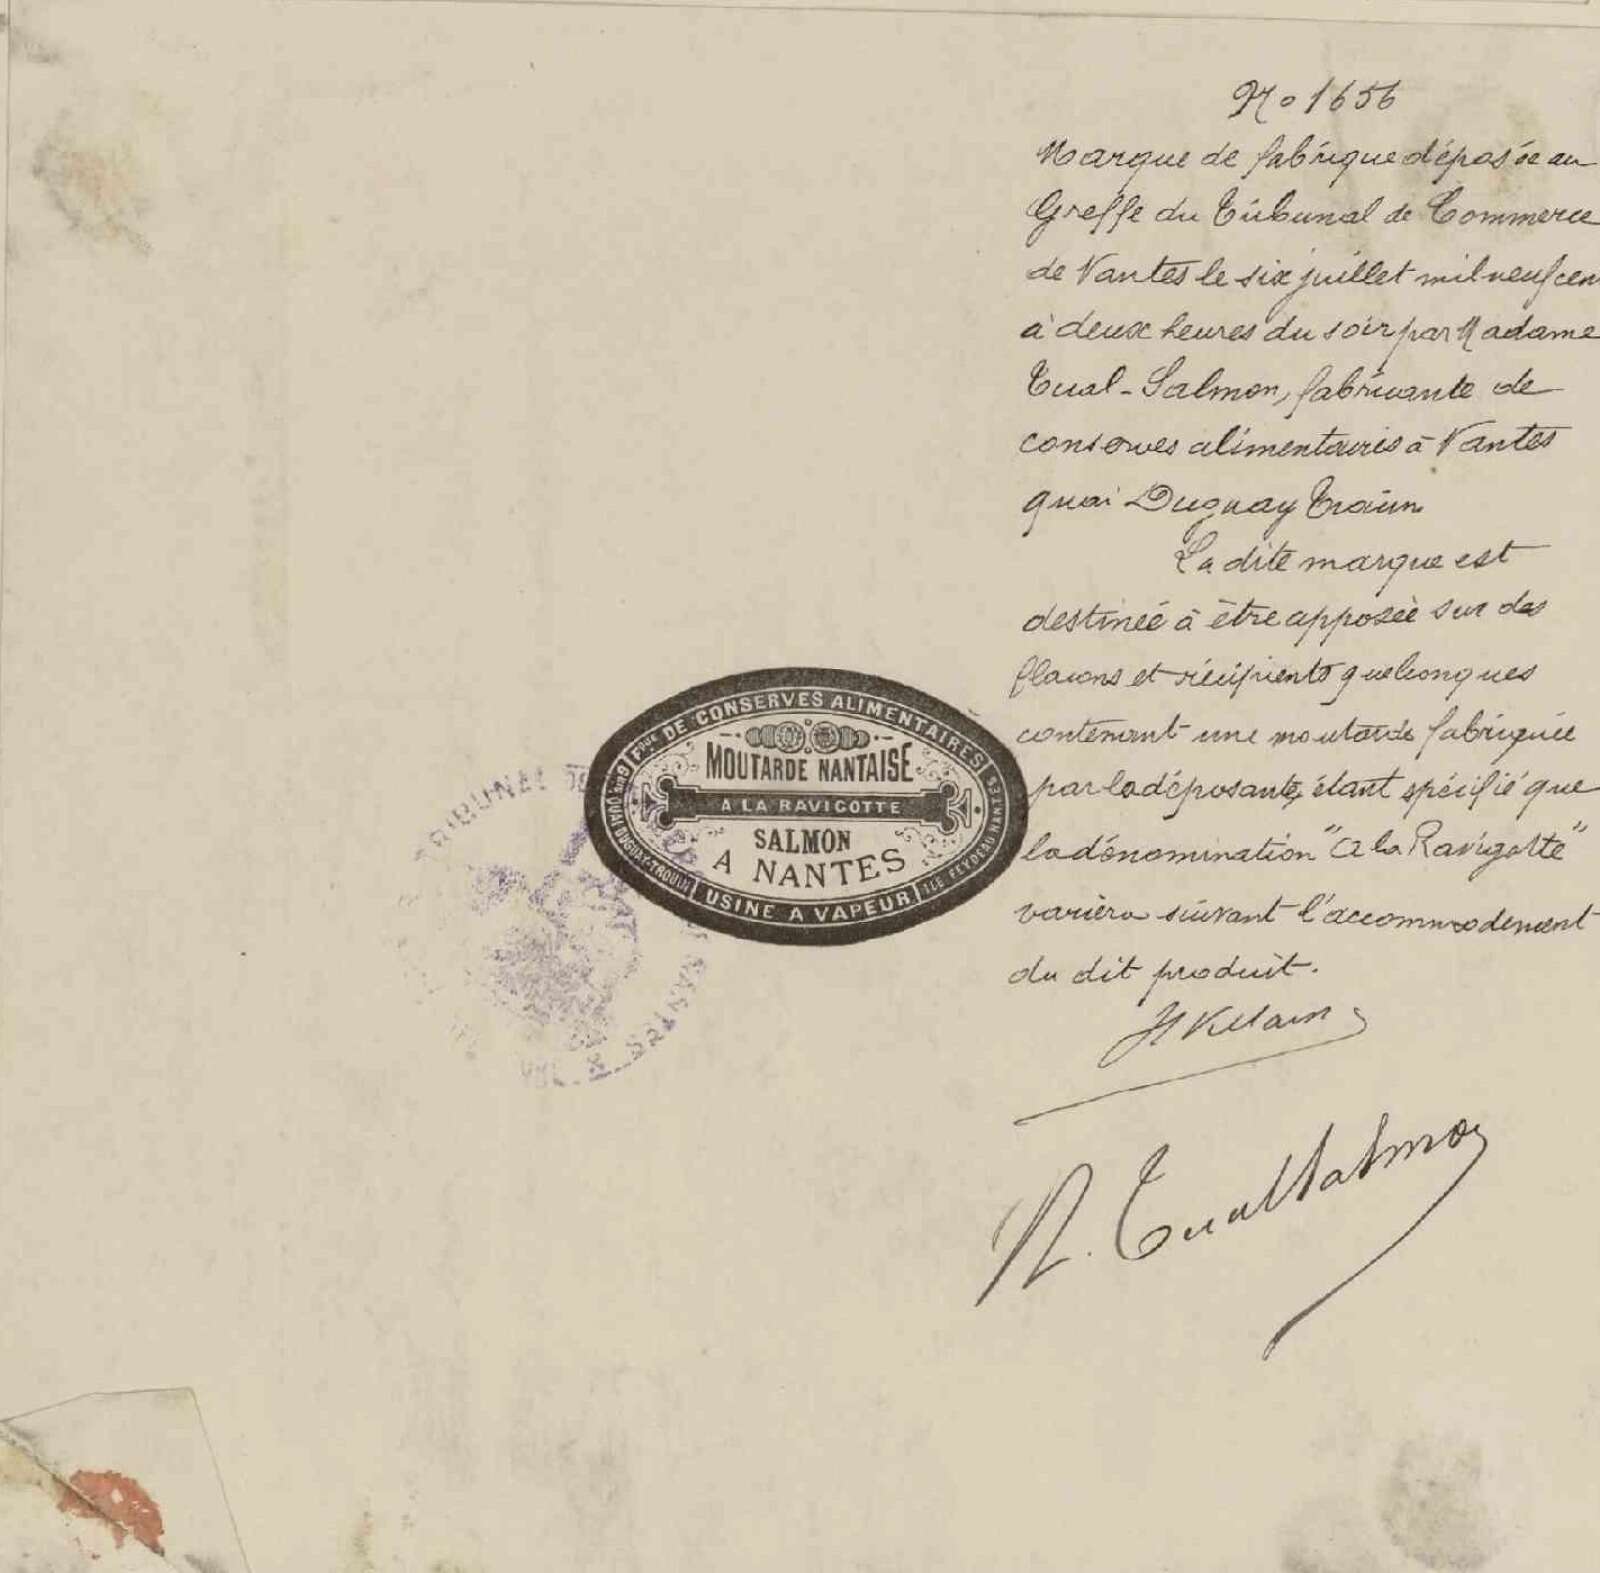 No 1656
Marque de fabrique déposée au
Greffe du Tribunal de Commerce
de Nantes le six juillet mil neuf cen
à deux heures du soir par Madame
Tual-Salmon, fabricante de
conserves alimentaires à Nantes
quai Duguay Trouin
La dite marque est
destinée à être apposée sur des
flacons et récipients quelconques
contenant une moutarde fabriquée
par la déposante, étant spécifié que
la dénomination "A la Ravigotte"
variera suivant l'accommodement
du dit produit.
R. Tual Salmon
Fque DE CONSERVES ALIMENTAIRES
MOUTARDE NANTAISE
A LA RAVIGOTTE
SALMON
A NANTES
QUAI DUGUAY-TROUIN
USINE A VAPEUR
ILE FEYDEAU NANTES
TRIBUNAL DE
NANTES